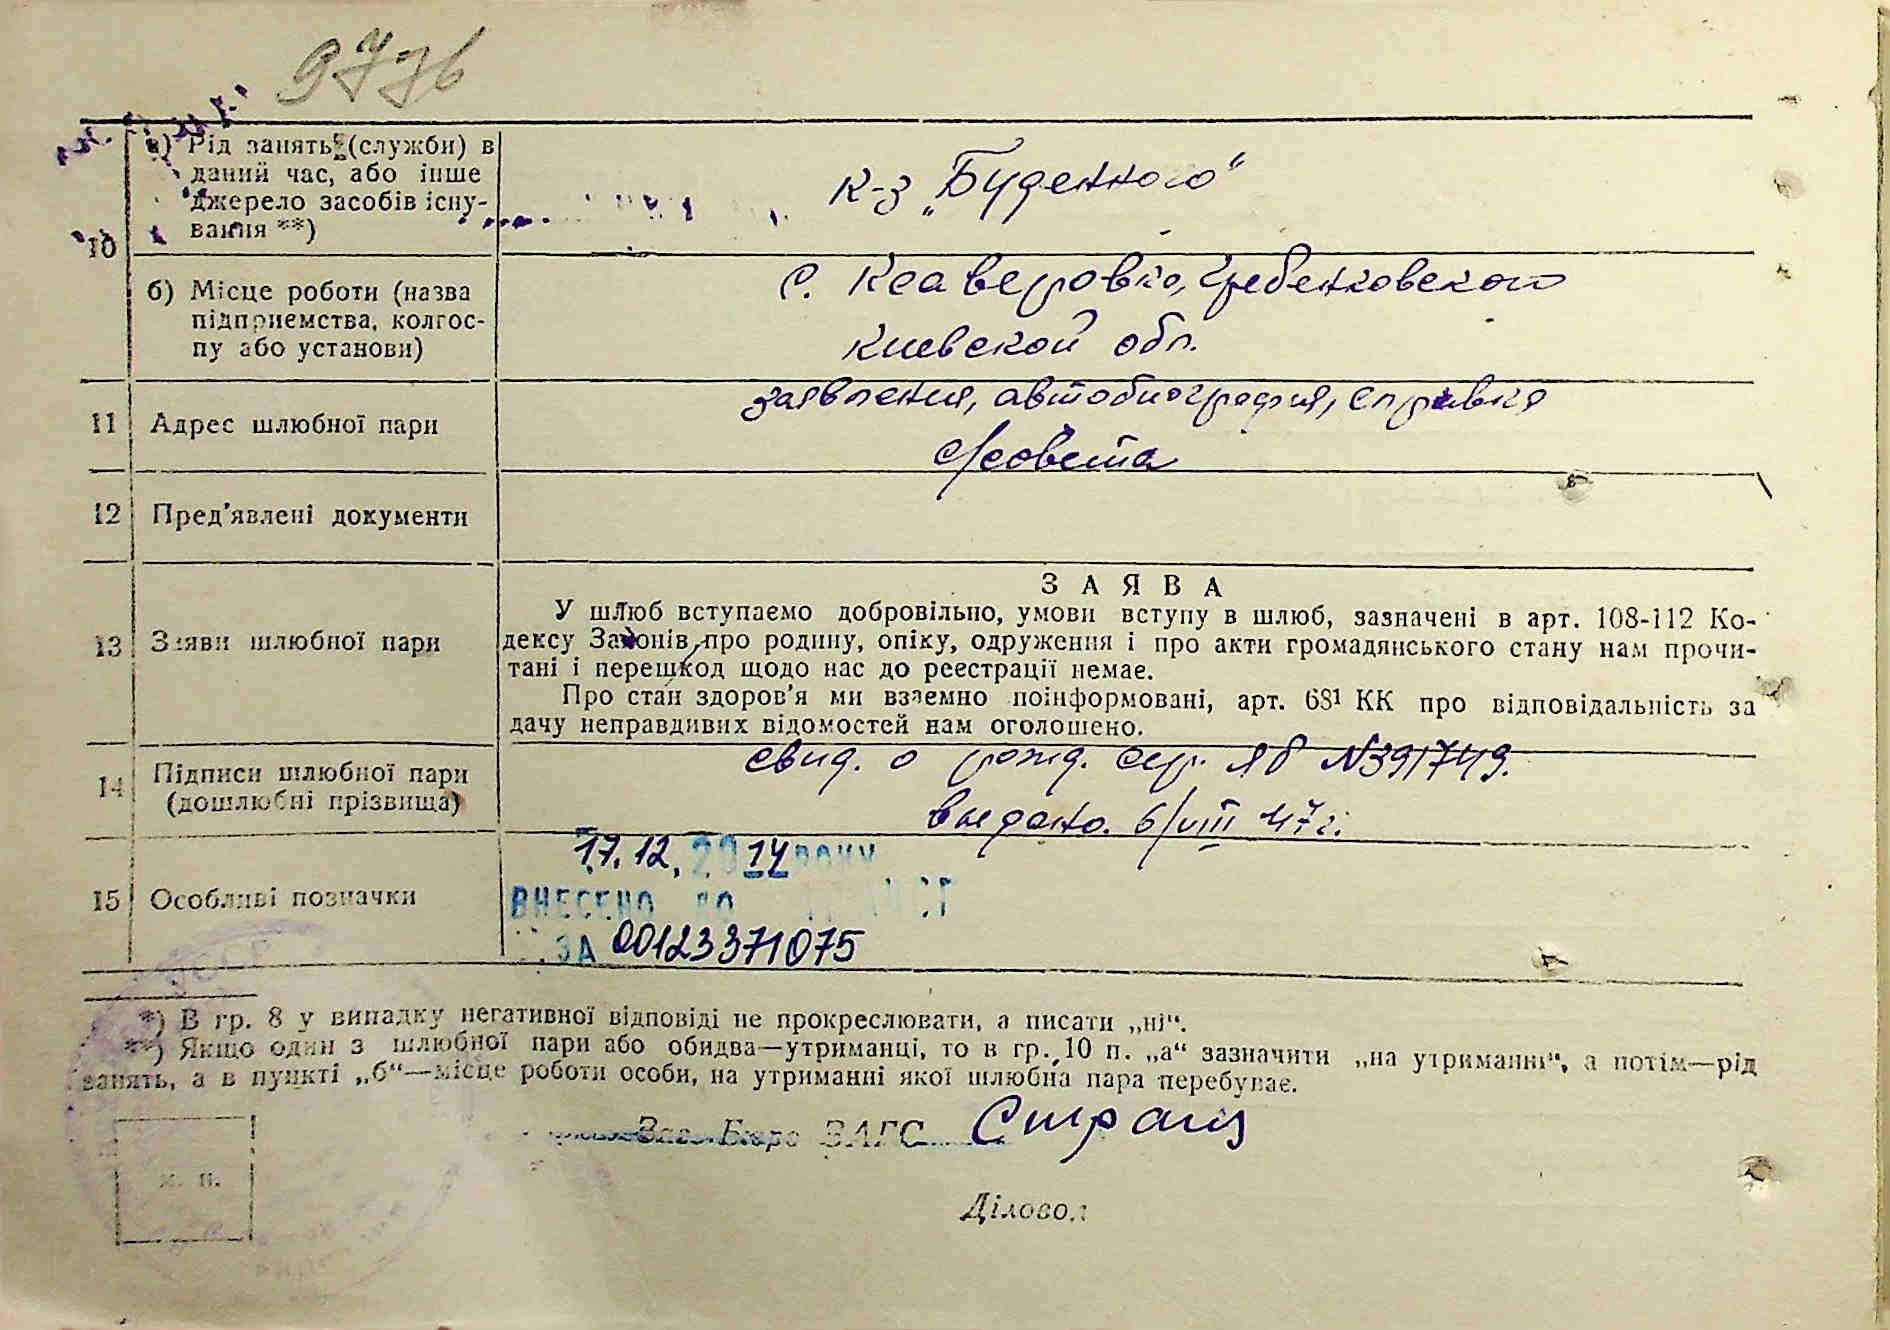 а) Рід занять (служби) в
даний час, або інше
джерело засобів існу-
вання **)
к-з „Буденного“
10
б) Місце роботи (назва
підприємства, колгос-
пу або установи)
с. Ксаверовка, Гребенковского
Киевской обл.
11 Адрес шлюбної пари
заявления, автобиография, справка
с/совета
12 Пред'явлені документи
13 Заяви шлюбної пари
ЗАЯВА
У шлюб вступаемо добровільно, умови вступу в шлюб, зазначені в арт. 108-112 Ко-
дексу Законів про родину, опіку, одруження і про акти громадянського стану нам прочи-
тані і перешкод щодо нас до реестрації немае.
Про стан здоров'я ми взаемно поінформовані, арт. 68¹ КК про відповідальність за
дачу неправдивих відомостей нам оголошено.
14 Підписи шлюбної пари
(дошлюбні прізвища)
свид. о рожд. сер. ЯБ №391749.
выдано. 6/VIII 47 г.
15 Особливі позначки
17.12. 2014 РОКУ
ВНЕСЕНО ДО
ЗА 00123371075
*) В гр. 8 у випадку негативної відповіді не прокреслювати, а писати „ні“.
**) Якщо один з шлюбної пари або обидва—утриманці, то в гр. 10 п. „а“ зазначити „на утриманні“, а потім—рід
занять, а в пункті „б“—місце роботи особи, на утриманні якої шлюбна пара перебувае.
Зав. Бюро ЗАГС
м. п.
Діловод